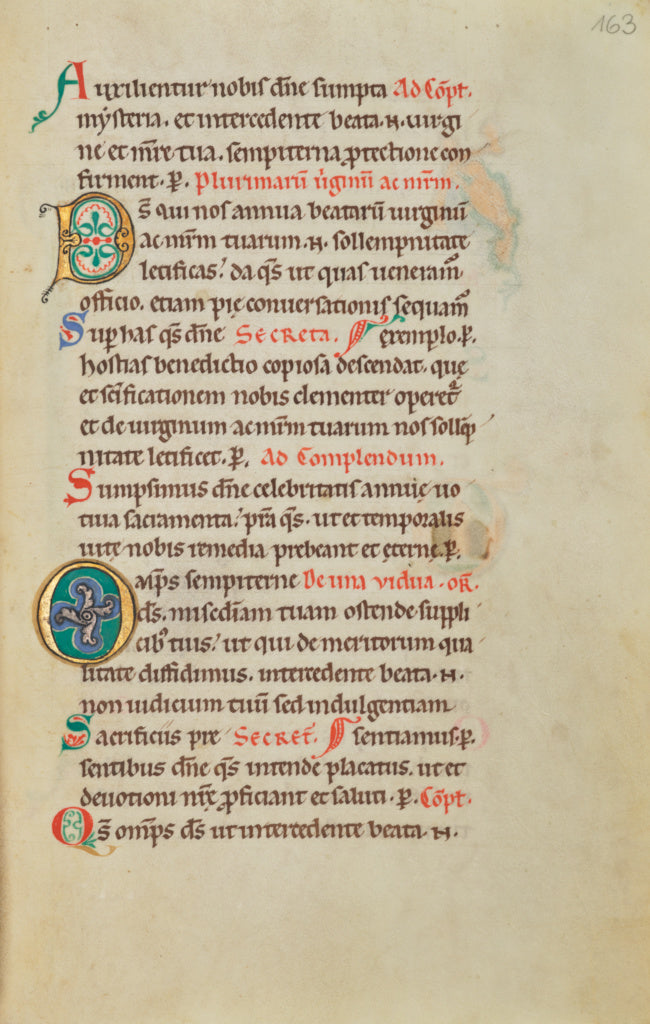 163
Auxilientur nobis dn̄e sumpta Ad Cōpt.
mẏsteria. et intercedente beata .N. uirgi
ne et mr̄e tua. sempiterna ꝓtectione con
firment. P̄. Plurimarū ṽginū ac mr̄m.
Ds̄ qui nos annua beatarū uirginū
ac mr̄m tuarum .N. sollempnitate
letificas? da qs̄ ut quas ueneram̄
officio. etiam pię conuersationis sequam̄
Sup has qs̄ dn̄e Secreta. exemplo. P̄.
hostias benedictio copiosa descendat. quę
et sc̄ificationem nobis clementer operet᷑
et de uirginum ac mr̄m tuarum nos sollēp
nitate letificet. P̄. Ad Complendum.
Sumpsimus dn̄e celebritatis annuę uo
tiua sacramenta? pr̄a qs̄. ut et temporalis
uitę nobis remedia prebeant et ęternę. P̄.
Omp̄s sempiterne De una vidua. or̄.
ds̄. mis̄c̄diam tuam ostende suppli
cibꝰ tuis? ut qui de meritorum qua
litate diffidimus. intercedente beata .N.
non iudicium tuū sed indulgentiam
Sacrificiis pre Secret̄. sentiamus. P̄.
sentibus dn̄e qs̄ intende placatus. ut et
deuotioni nr̄ę ꝓficiant et saluti. P̄. Cōpt.
Qs̄ omp̄s ds̄ ut intercedente beata .N.